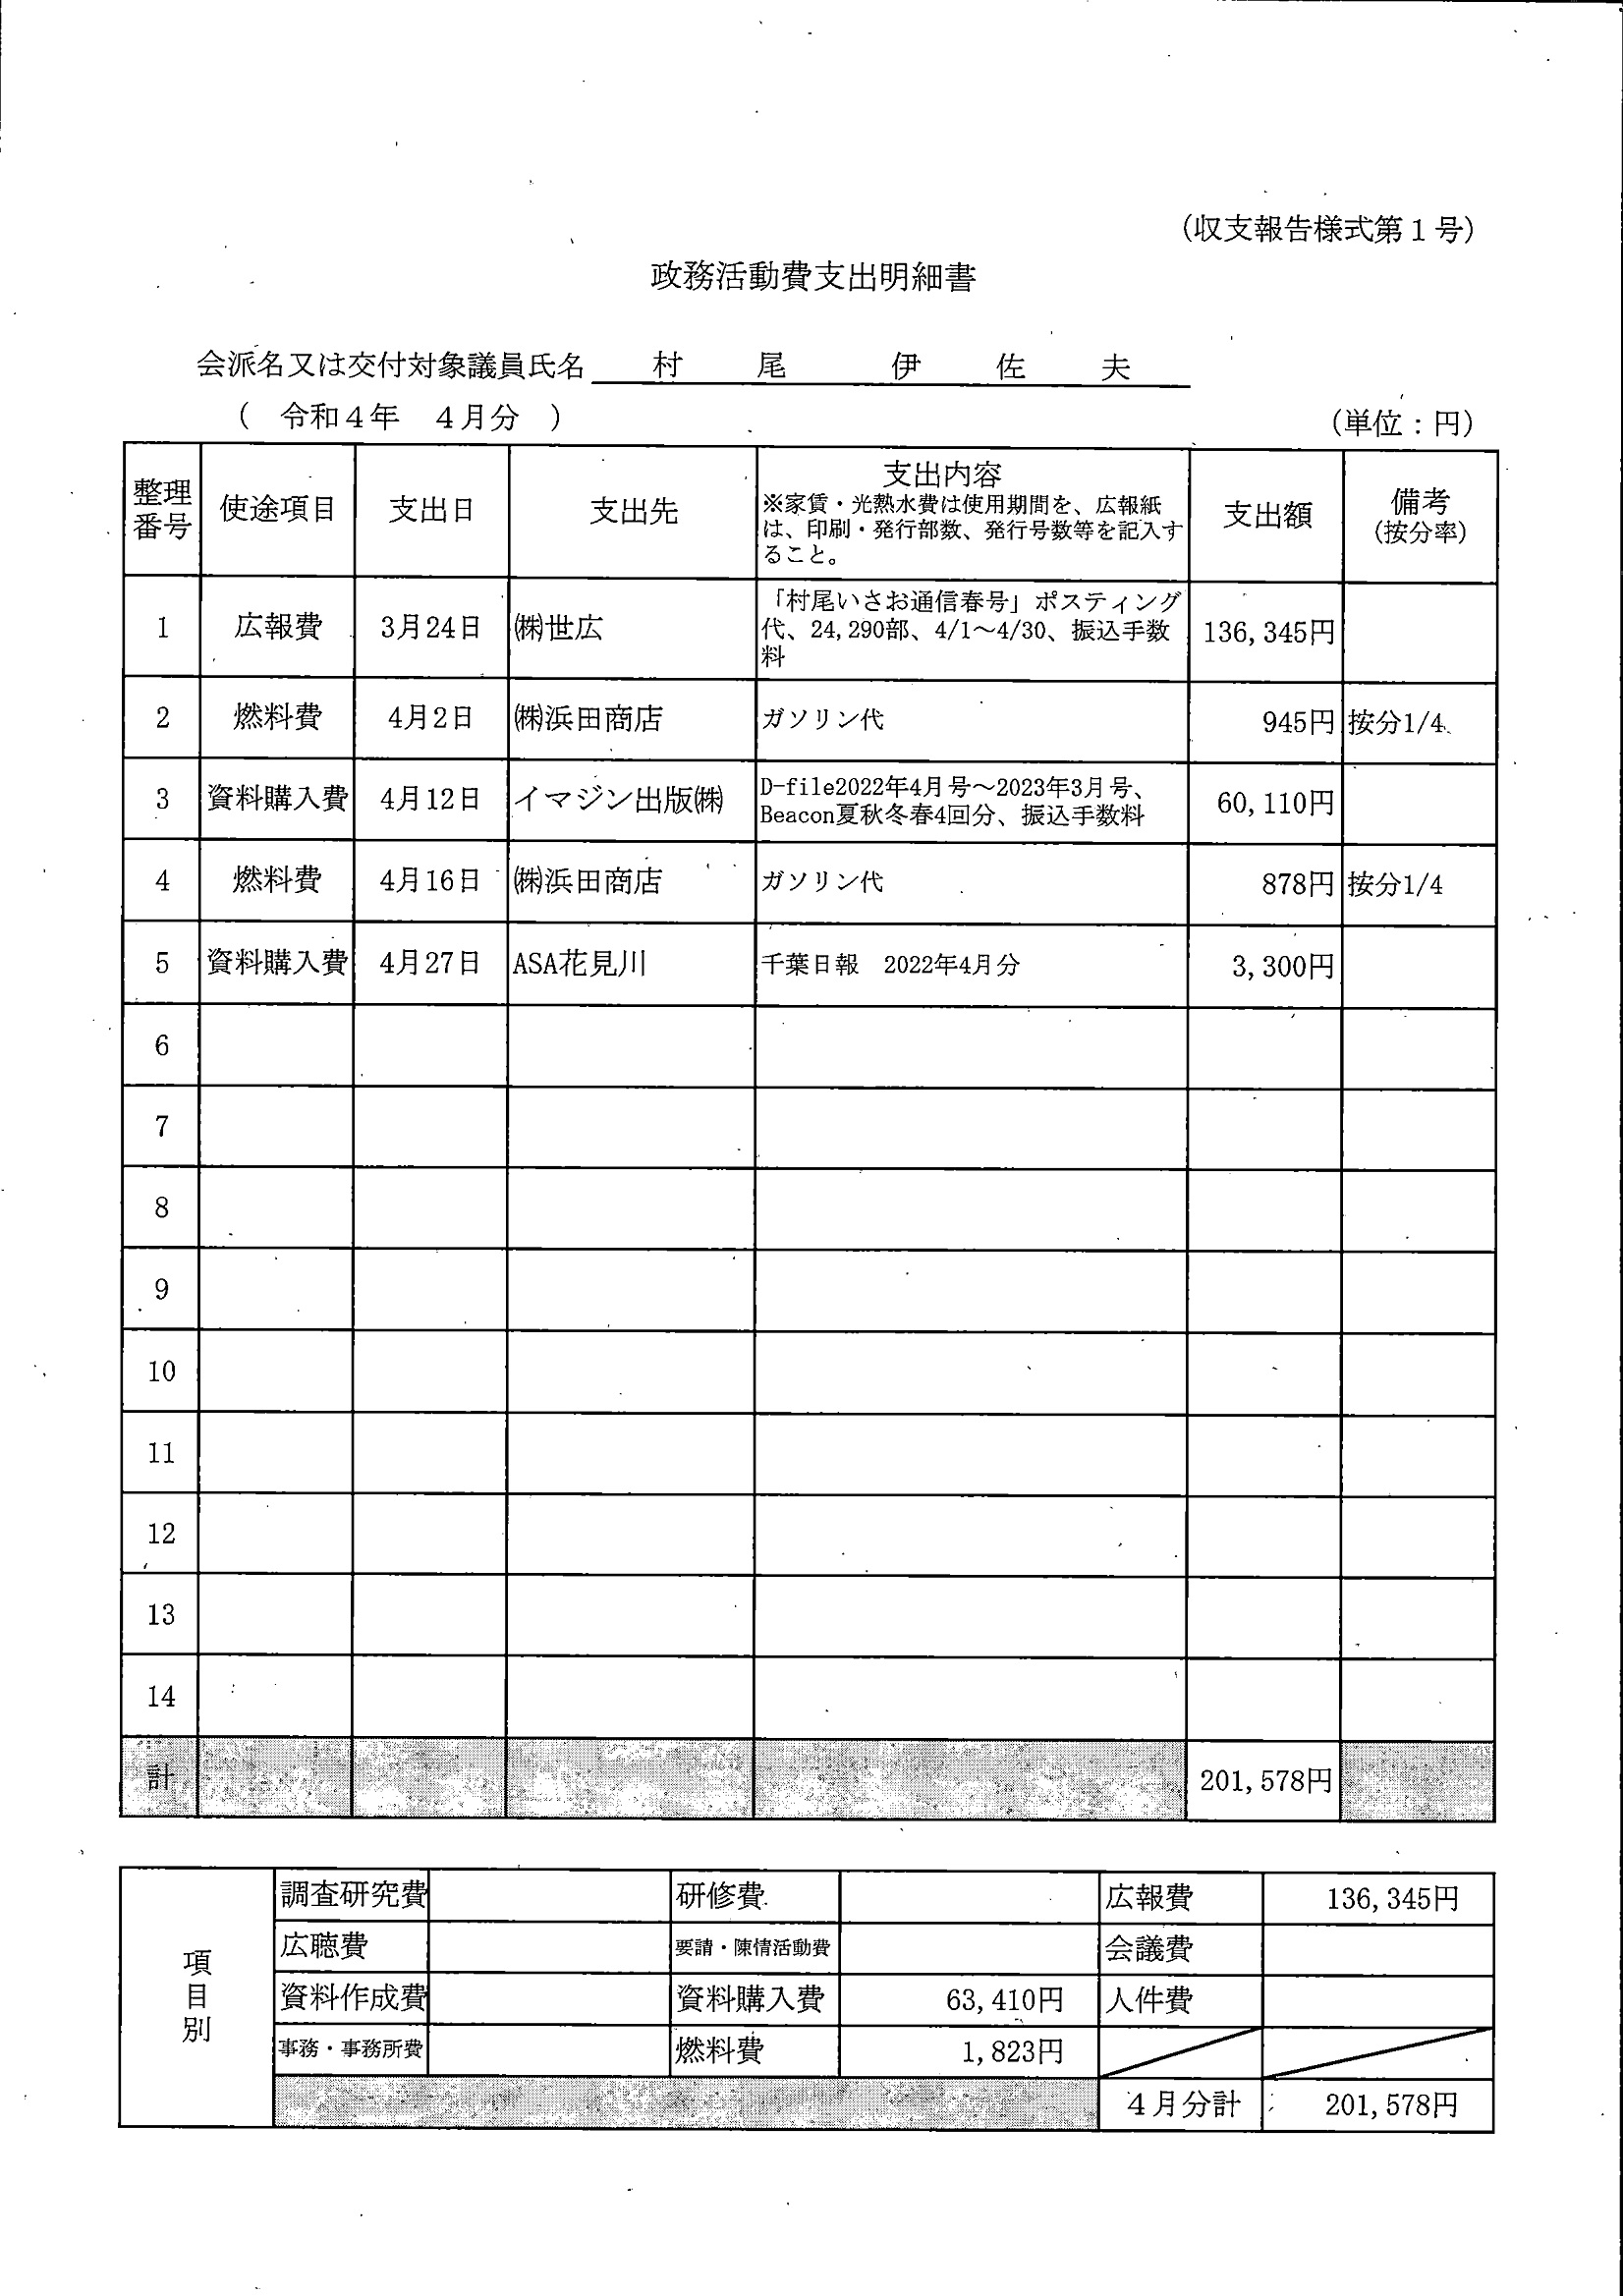 （収支報告様式第１号）
政務活動費支出明細書
会派名又は交付対象議員氏名　村　尾　伊　佐　夫
（　令和４年　４月分　）
（単位：円）
整理番号　使途項目　支出日　支出先　支出内容　支出額　備考（按分率）
※家賃・光熱水費は使用期間を、広報紙
は、印刷・発行部数、発行号数等を記入す
ること。
1　広報費　3月24日　㈱世広　「村尾いさお通信春号」ポスティング
代、24,290部、4/1～4/30、振込手数
料　136,345円
2　燃料費　4月2日　㈱浜田商店　ガソリン代　945円　按分1/4
3　資料購入費　4月12日　イマジン出版㈱　D-file2022年4月号～2023年3月号、
Beacon夏秋冬春4回分、振込手数料　60,110円
4　燃料費　4月16日　㈱浜田商店　ガソリン代　878円　按分1/4
5　資料購入費　4月27日　ASA花見川　千葉日報　2022年4月分　3,300円
6
7
8
9
10
11
12
13
14
計　201,578円
項目別
調査研究費　研修費　広報費　136,345円
広聴費　要請・陳情活動費　会議費
資料作成費　資料購入費　63,410円　人件費
事務・事務所費　燃料費　1,823円
４月分計　201,578円